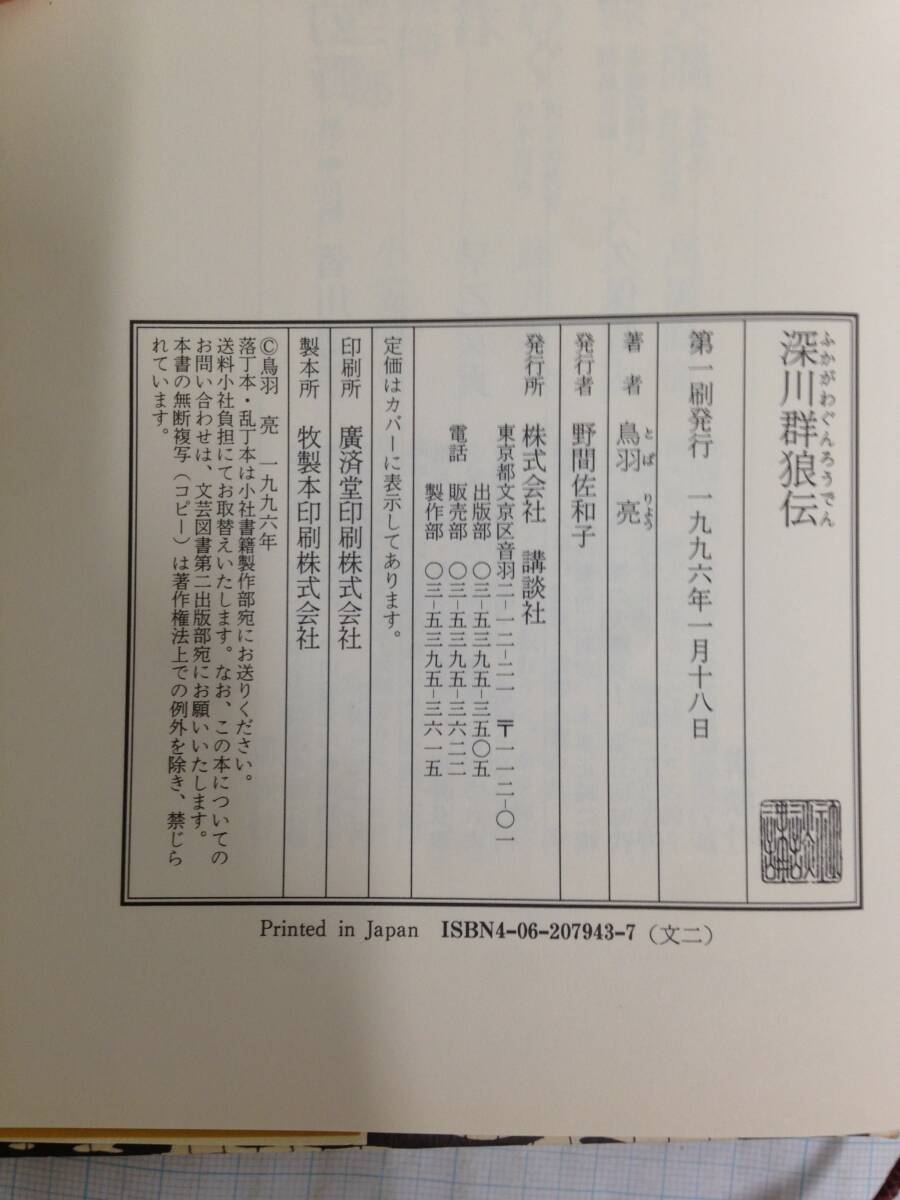 ふかがわぐんろうでん
深川群狼伝
第一刷発行 一九九六年一月十八日
とば りょう
著 者 鳥羽 亮
発行者 野間佐和子
発行所 株式会社 講談社
東京都文京区音羽二-一二-二一 〒一一二-〇一
出版部 〇三-五三九五-三五〇五
電話 販売部 〇三-五三九五-三六二二
製作部 〇三-五三九五-三六一五
定価はカバーに表示してあります。
印刷所 廣済堂印刷株式会社
製本所 牧製本印刷株式会社
©鳥羽 亮 一九九六年
落丁本・乱丁本は小社書籍製作部宛にお送りください。
送料小社負担にてお取替えいたします。なお、この本についての
お問い合わせは、文芸図書第二出版部宛にお願いいたします。
本書の無断複写（コピー）は著作権法上での例外を除き、禁じら
れています。
Printed in Japan ISBN4-06-207943-7（文二）